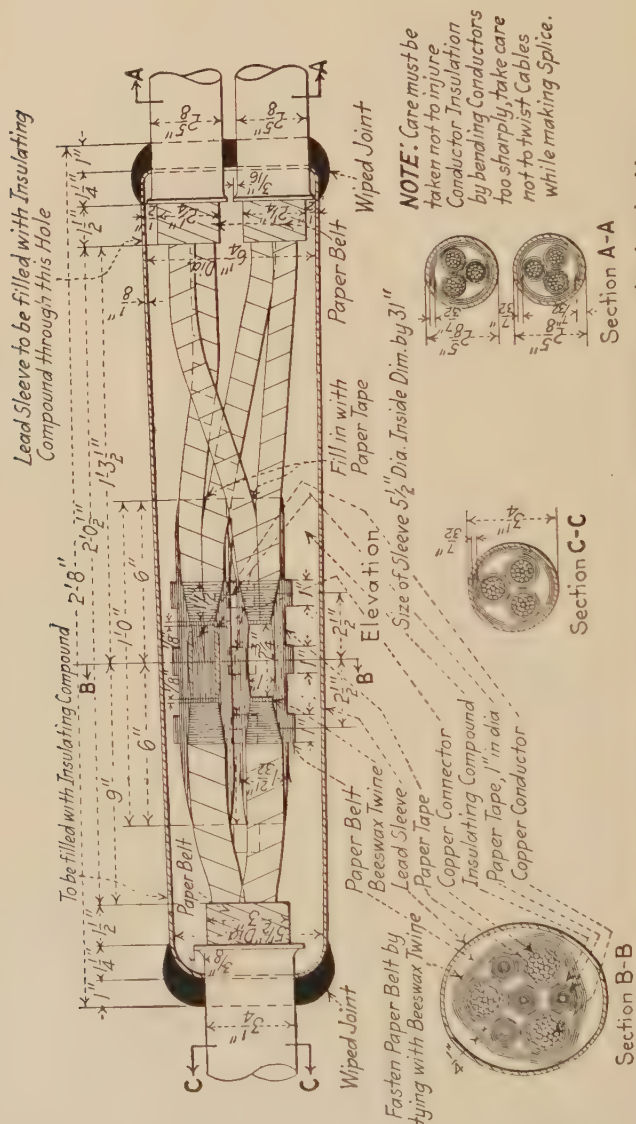 Lead Sleeve to be filled with Insulating
Compound through this Hole
To be filled with Insulating Compound
2'8"
B
2'0½"
9"
1'0"
1'3½"
6"
6"
1"
¼"
1½"
1½"
¼"
1"
C
C
A
A
3¼"
3/8"
5½" Dia.
Paper Belt
7/8"
7/8"
1/8"
6¼" Dia.
2¼"
2¼"
3/16"
2⅝"
2⅝"
1 21/32"
1"
1"
1"
2½"
2½"
B
Elevation
Wiped Joint
Wiped Joint
Paper Belt
Fill in with
Paper Tape
Size of Sleeve 5½" Dia. Inside Dim. by 31"
Fasten Paper Belt by
tying with Beeswax Twine
Paper Belt
Beeswax Twine
Lead Sleeve
Paper Tape
Copper Connector
Insulating Compound
Paper Tape, 1" in dia
Copper Conductor
NOTE: Care must be
taken not to injure
Conductor Insulation
by bending Conductors
too sharply, take care
not to twist Cables
while making Splice.
Section B-B
3¼"
7/32"
Section C-C
2⅝"
2⅝"
7/32"
7/32"
Section A-A